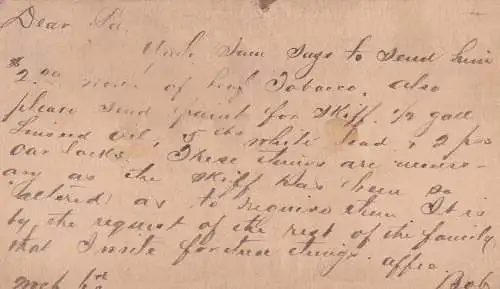 Dear Pa.
Uncle Sam says to send him
$2.00 more of leaf Tobacco, also
please send paint for Skiff. 1/2 gall
Linseed Oil, 5 lbs white lead & 2 prs
oar locks. These things are necess-
ary as the skiff has been so
altered as to require them It is
by the request of the rest of the family
that I write for these things. affec.
Bob